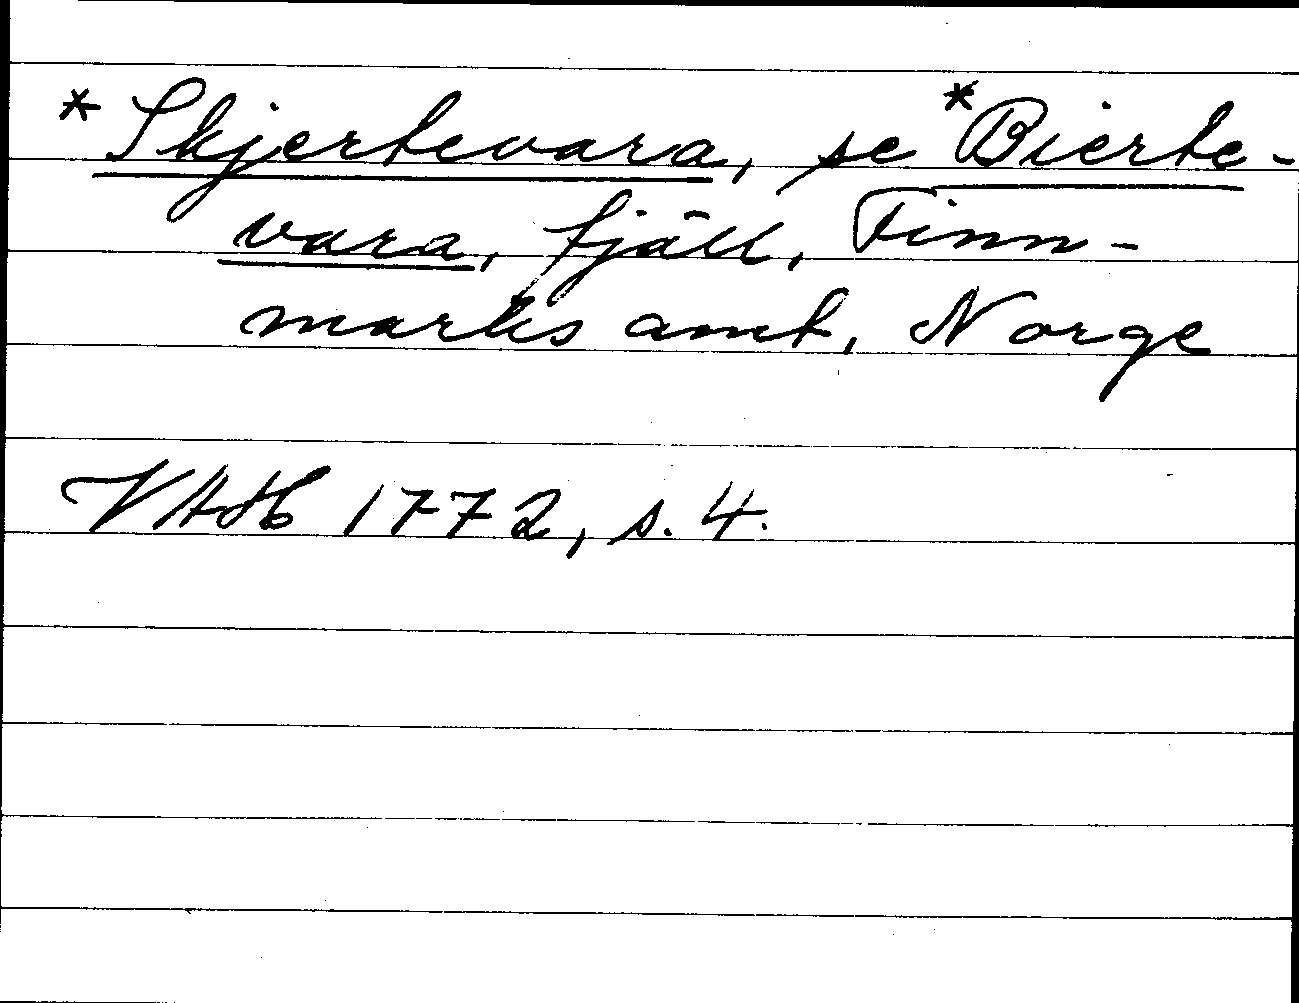 *Skjertevara, se *Bierte-
vara, fjäll, Finn-
marks amt, Norge
VAH 1772, s. 4.